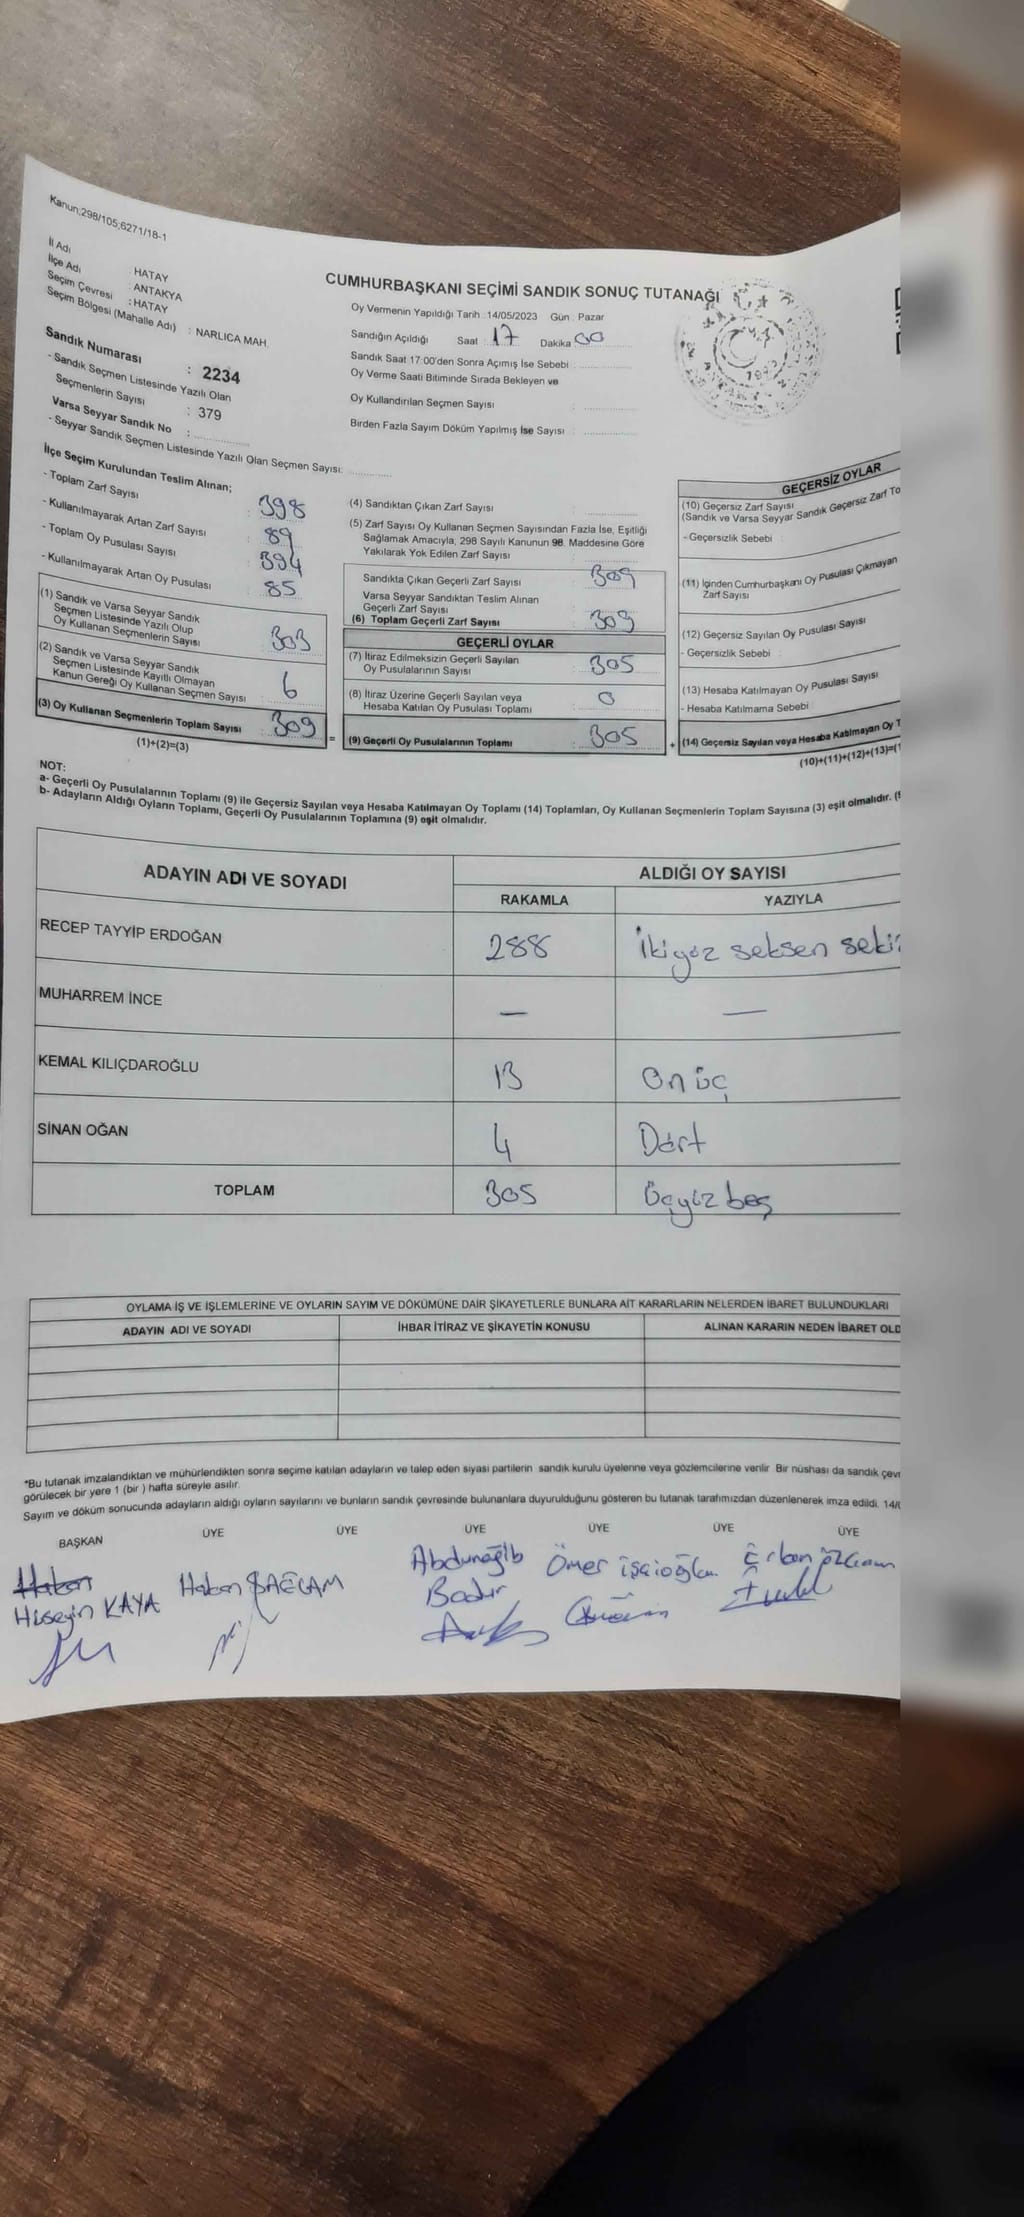 Kanun;298/105;6271/18-1
İl Adı : HATAY
İlçe Adı : ANTAKYA
Seçim Çevresi : HATAY
Seçim Bölgesi (Mahalle Adı) : NARLICA MAH.
Sandık Numarası : 2234
- Sandık Seçmen Listesinde Yazılı Olan
Seçmenlerin Sayısı : 379
Varsa Seyyar Sandık No :
- Seyyar Sandık Seçmen Listesinde Yazılı Olan Seçmen Sayısı:
CUMHURBAŞKANI SEÇİMİ SANDIK SONUÇ TUTANAĞI
Oy Vermenin Yapıldığı Tarih :14/05/2023 Gün : Pazar
Sandığın Açıldığı Saat : 17 Dakika 00
Sandık Saat 17:00'den Sonra Açımış İse Sebebi :
Oy Verme Saati Bitiminde Sırada Bekleyen ve
Oy Kullandırılan Seçmen Sayısı :
Birden Fazla Sayım Döküm Yapılmış İse Sayısı :
İlçe Seçim Kurulundan Teslim Alınan;
- Toplam Zarf Sayısı : 398
- Kullanılmayarak Artan Zarf Sayısı : 89
- Toplam Oy Pusulası Sayısı : 394
- Kullanılmayarak Artan Oy Pusulası : 85
(1) Sandık ve Varsa Seyyar Sandık
Seçmen Listesinde Yazılı Olup
Oy Kullanan Seçmenlerin Sayısı : 303
(2) Sandık ve Varsa Seyyar Sandık
Seçmen Listesinde Kayıtlı Olmayan
Kanun Gereği Oy Kullanan Seçmen Sayısı : 6
(3) Oy Kullanan Seçmenlerin Toplam Sayısı : 309
(1)+(2)=(3)
(4) Sandıktan Çıkan Zarf Sayısı :
(5) Zarf Sayısı Oy Kullanan Seçmen Sayısından Fazla İse, Eşitliği
Sağlamak Amacıyla, 298 Sayılı Kanunun 98. Maddesine Göre
Yakılarak Yok Edilen Zarf Sayısı :
Sandıkta Çıkan Geçerli Zarf Sayısı : 309
Varsa Seyyar Sandıktan Teslim Alınan
Geçerli Zarf Sayısı :
(6) Toplam Geçerli Zarf Sayısı : 309
=
GEÇERLİ OYLAR
(7) İtiraz Edilmeksizin Geçerli Sayılan
Oy Pusulalarının Sayısı : 305
(8) İtiraz Üzerine Geçerli Sayılan veya
Hesaba Katılan Oy Pusulası Toplamı : 0
(9) Geçerli Oy Pusulalarının Toplamı : 305
+
GEÇERSİZ OYLAR
(10) Geçersiz Zarf Sayısı
(Sandık ve Varsa Seyyar Sandık Geçersiz Zarf To
- Geçersizlik Sebebi :
(11) İçinden Cumhurbaşkanı Oy Pusulası Çıkmayan
Zarf Sayısı
(12) Geçersiz Sayılan Oy Pusulası Sayısı
- Geçersizlik Sebebi :
(13) Hesaba Katılmayan Oy Pusulası Sayısı
- Hesaba Katılmama Sebebi :
(14) Geçersiz Sayılan veya Hesaba Katılmayan Oy T
(10)+(11)+(12)+(13)=(1
NOT:
a- Geçerli Oy Pusulalarının Toplamı (9) ile Geçersiz Sayılan veya Hesaba Katılmayan Oy Toplamı (14) Toplamları, Oy Kullanan Seçmenlerin Toplam Sayısına (3) eşit olmalıdır.
b- Adayların Aldığı Oyların Toplamı, Geçerli Oy Pusulalarının Toplamına (9) eşit olmalıdır.
ADAYIN ADI VE SOYADI ALDIĞI OY SAYISI
RAKAMLA YAZIYLA
RECEP TAYYİP ERDOĞAN 288 İkiyüz seksen sekiz
MUHARREM İNCE — —
KEMAL KILIÇDAROĞLU 13 On üç
SİNAN OĞAN 4 Dört
TOPLAM 305 Üçyüz beş
OYLAMA İŞ VE İŞLEMLERİNE VE OYLARIN SAYIM VE DÖKÜMÜNE DAİR ŞİKAYETLERLE BUNLARA AİT KARARLARIN NELERDEN İBARET BULUNDUKLARI
ADAYIN ADI VE SOYADI İHBAR İTİRAZ VE ŞİKAYETİN KONUSU ALINAN KARARIN NEDEN İBARET OLD
*Bu tutanak imzalandıktan ve mühürlendikten sonra seçime katılan adayların ve talep eden siyasi partilerin sandık kurulu üyelerine veya gözlemcilerine verilir. Bir nüshası da sandık çevr
görülecek bir yere 1 (bir ) hafta süreyle asılır.
Sayım ve döküm sonucunda adayların aldığı oyların sayılarını ve bunların sandık çevresinde bulunanlara duyurulduğunu gösteren bu tutanak tarafımızdan düzenlenerek imza edildi. 14/0
BAŞKAN ÜYE ÜYE ÜYE ÜYE ÜYE ÜYE
Hakan
Hüseyin KAYA Hakan SAĞLAM Abdunağib Ömer
Badır